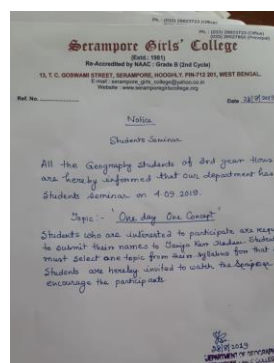 Serampore Girls' College
(Estd.: 1981)
Re-Accredited by NAAC : Grade B (2nd Cycle)
13, T. C. GOSWAMI STREET, SERAMPORE, HOOGHLY, PIN-712 201, WEST BENGAL.
E-mail : serampore_girls_college@yahoo.co.in
Website : www.seramporegirlscollege.org
Ref. No.
Date 28/8/2019
Notice
Students Seminar
All the Geography Students of 2nd year Hons
are hereby informed that our department has
Students Seminar on 4.09.2019.
Topic :- "One day One Concept"
Students who are interested to participate are
to submit their names to Taniya
must select one topic from their syllabus for that
Students are hereby invited to watch the Seminar
encourage the participants
28/8/2019
DEPARTMENT OF GEOGRAPHY